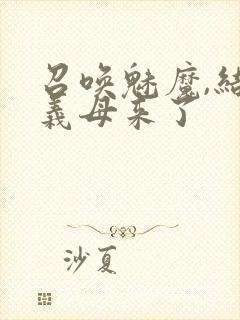 召唤魅魔,结
義母来了
沙夏